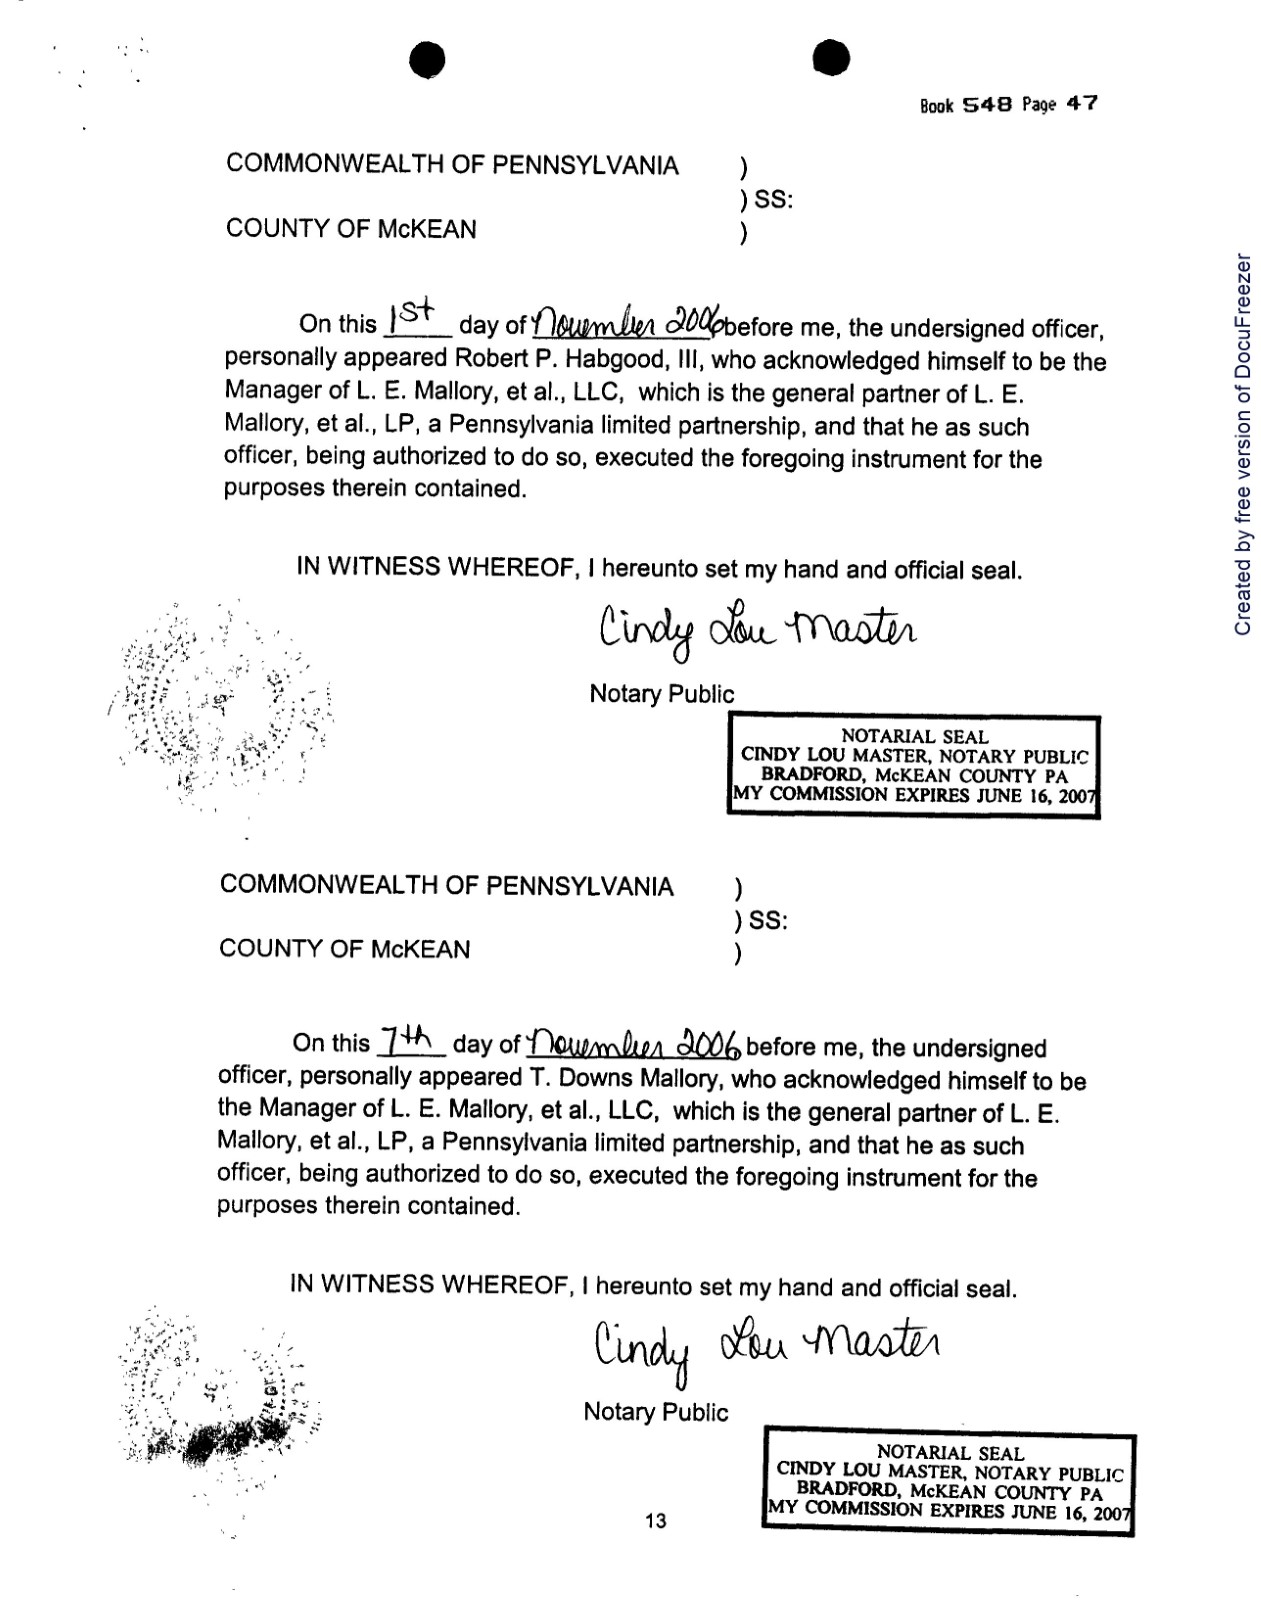 Book 548 Page 47
COMMONWEALTH OF PENNSYLVANIA )
) SS:
COUNTY OF McKEAN )
On this 1st day of November 2006 before me, the undersigned officer,
personally appeared Robert P. Habgood, III, who acknowledged himself to be the
Manager of L. E. Mallory, et al., LLC, which is the general partner of L. E.
Mallory, et al., LP, a Pennsylvania limited partnership, and that he as such
officer, being authorized to do so, executed the foregoing instrument for the
purposes therein contained.
IN WITNESS WHEREOF, I hereunto set my hand and official seal.
Cindy Lou Master
Notary Public
NOTARIAL SEAL
CINDY LOU MASTER, NOTARY PUBLIC
BRADFORD, McKEAN COUNTY PA
MY COMMISSION EXPIRES JUNE 16, 2007
COMMONWEALTH OF PENNSYLVANIA )
) SS:
COUNTY OF McKEAN )
On this 7th day of November 2006 before me, the undersigned
officer, personally appeared T. Downs Mallory, who acknowledged himself to be
the Manager of L. E. Mallory, et al., LLC, which is the general partner of L. E.
Mallory, et al., LP, a Pennsylvania limited partnership, and that he as such
officer, being authorized to do so, executed the foregoing instrument for the
purposes therein contained.
IN WITNESS WHEREOF, I hereunto set my hand and official seal.
Cindy Lou Master
Notary Public
NOTARIAL SEAL
CINDY LOU MASTER, NOTARY PUBLIC
BRADFORD, McKEAN COUNTY PA
MY COMMISSION EXPIRES JUNE 16, 2007
13
Created by free version of DocuFreezer